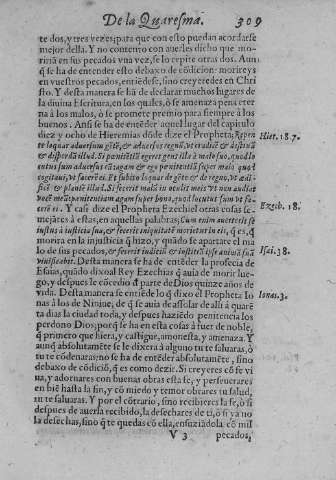 De la Quaresma. 309
te dos, y tres vezes, para que con esto puedan acordarse
mejor della. Y no contento con auerles dicho que mo-
rirná en sus pecados vna vez, se lo repite otras dos. Aun
q̃ se ha de entender esto debaxo de cõdicion: morireys
en vuestros pecados, entiẽdese, sino creyeredes en Chri-
sto. Y desta manera se ha de declarar muchos lugares de
la diuina Escritura, en los quales, ò se amenaza pena eter
na à los malos, ò se promete premio para siempre à los
buenos. Ansi se ha de entender aquel lugar del capitulo
diez y ocho de Hieremias dõde dize el Propheta: Repen
te loquar aduersum gẽtẽ, & aduersus regnũ, vt eradicẽ & destruã
& disperdã illud. Si penitẽtiã egerit gens illa à malo suo, quod lo
entus sum aduersus eã, agam & ego penitentiã super malo quod
cogitaui, vt facerẽ ei. Et subito loquar de gẽte & de regno, vt ædi-
ficẽ & plantẽ illud. Si fecerit malũ in oculis meis vt non audiat
vocẽ meã, penitentiam agam super bono, quod locutus sum vt fa-
cerẽ ei. Y casi dize el Propheta Ezechiel otras cosas se-
mejãtes à estas, en aquellas palabras; Cum enim auerterit se
iustus à iustitia sua, & fecerit iniquitatẽ morietur in eis, q̃ es, q̃
morira en la injusticia q̃ hizo, y quãdo se apartare el ma
lo de sus pecados, & fecerit iudiciũ & iustitiã ipse animã suã
viuificabit. Desta manera se ha de entẽder la profecia de
Esaias, quãdo dixo al Rey Ezechias q̃ auia de morir lue-
go, y despues le cõcedio de parte de Dios quinze años de
vida. Desta manera se entiẽde lo q̃ dixo el Propheta Io
nas à los de Niniue, de q̃ se auia de assolar de alli à quarẽ
ta dias la ciudad toda, y despues haziẽdo penitencia los
perdono Dios; porq̃ se ha en esta cosas à fuer de noble,
q̃ primero que hiera, y castigue, amonesta, y amenaza. Y
aunq̃ absolutamẽte se le dixera à alguno tu te saluaras, ò
tu te cõdenaras; no se ha de entẽder absolutamẽte, sino
debaxo de cõdiciõ, q̃ es como dezir. Si creyeres cõ fe vi
ua, y adornares con buenas obras esta fe, y perseuerares
en biẽ hasta la fin, y cõ miedo y temor obrares tu salud,
tu te saluaras. Y por el cõtrario, sino recibieres la fe, ò si
despues de auerla recibido, la desechares de ti, ò si ya no
la desechas, sino q̃ te quedas cõ ella, ensuziãdola cõ mil
V 3 pecados,
Hier. 18.7.
Ezech. 18.
Isai. 38.
Ionas. 3.